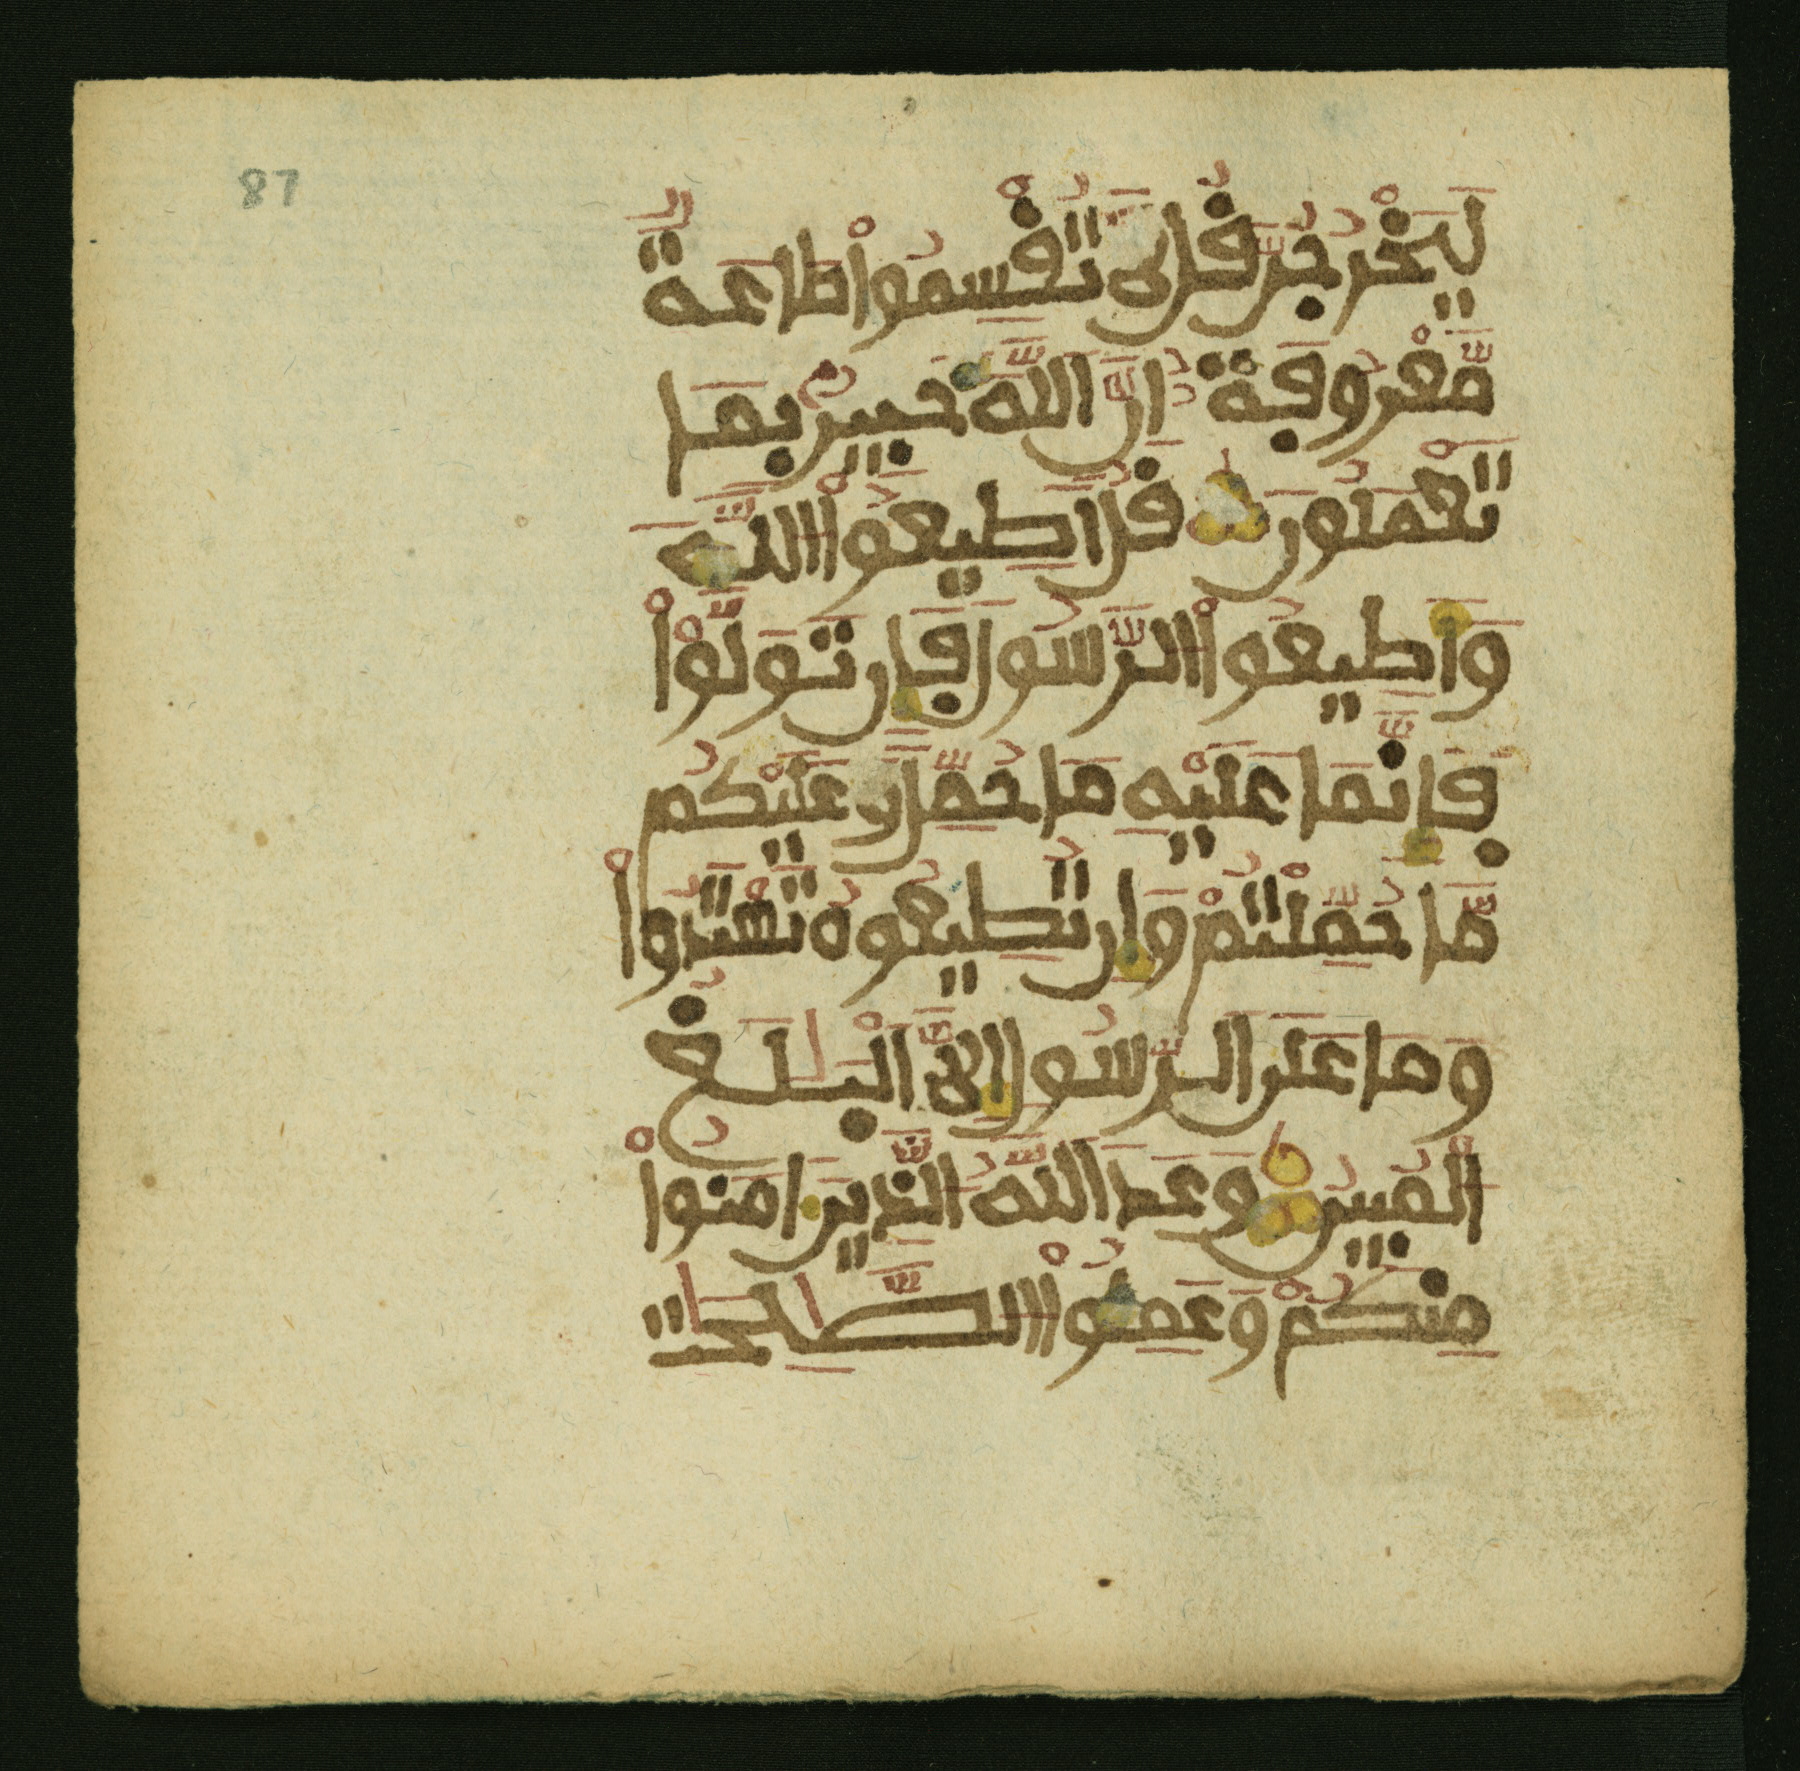 87
لَيَخْرُجُنَّ قُل لَّا تُقْسِمُواْ طَاعَةٌ
مَّعْرُوفَةٌ اِنَّ اَللَّهَ خَبِيرٌ بِمَا
تَعْمَلُونَ قُلَ اَطِيعُواْ اُللَّهَ
وَأَطِيعُواْ اُلرَّسُولَ فَإِن تَوَلَّوْاْ
فَإِنَّمَا عَلَيْهِ مَا حُمِّلَ وَعَلَيْكُم
مَّا حُمِّلْتُمْ وَإِن تُطِيعُوهُ تَهْتَدُواْ
وَمَا عَلَى اَلرَّسُولِ إِلَّا اَلْبَلَٰغُ
اُلْمُبِينُ وَعَدَ اَللَّهُ اُلَّذِينَ ءَامَنُواْ
مِنكُمْ وَعَمِلُواْ اُلصَّٰلِحَٰتِ